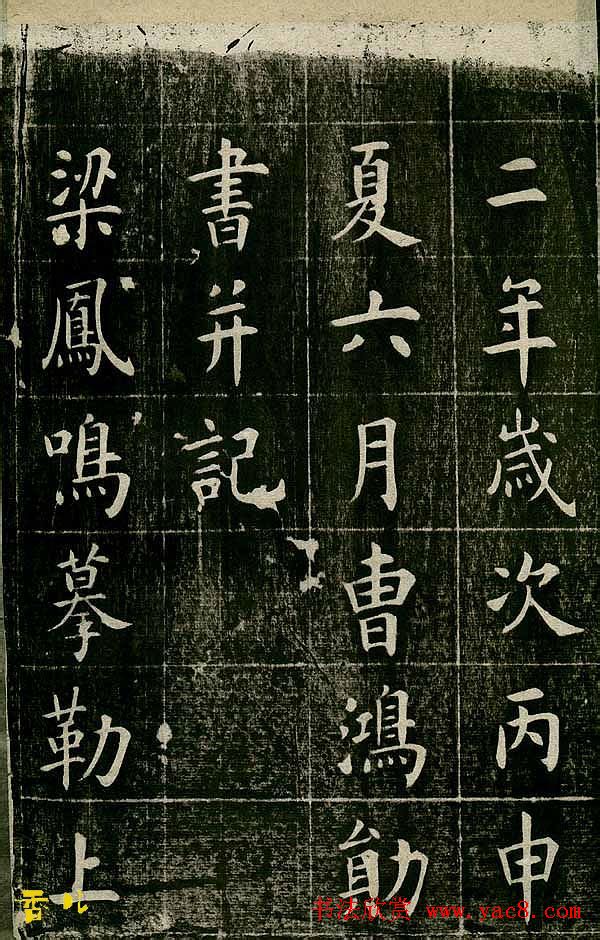 二年歲次丙申
夏六月曺鴻勛
書并記
梁鳳鳴摹勒上
书法欣赏 www.yac8.com